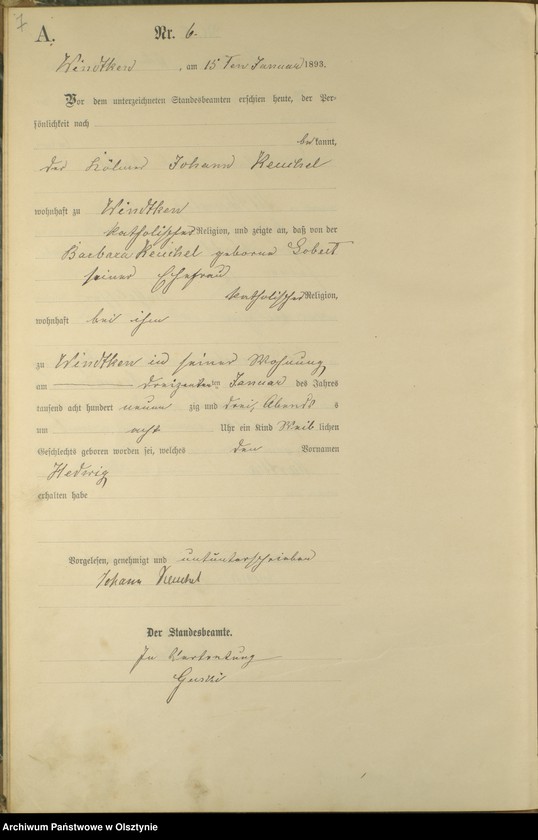 7
A.
Nr. 6.
Windtken, am 15 ten Januar 1893.
Vor dem unterzeichneten Standesbeamten erschien heute, der Per-
sönlichkeit nach
be kannt,
der Kölmer Johann Keuchel
wohnhaft zu Windtken
katholischer Religion, und zeigte an, daß von der
Barbara Keuchel geborne Gobert
seiner Ehefrau
katholischer Religion,
wohnhaft bei ihm
zu Windtken in seiner Wohnung
am dreizenten ten Januar des Jahres
tausend acht hundert neun zig und drei, Abends s
um acht Uhr ein Kind Weib lichen
Geschlechts geboren worden sei, welches den Vornamen
Hedwig
erhalten habe
Vorgelesen, genehmigt und unterschrieben
Johann Keuchel
Der Standesbeamte.
In Vertretung
Archiwum Państwowe w Olsztynie